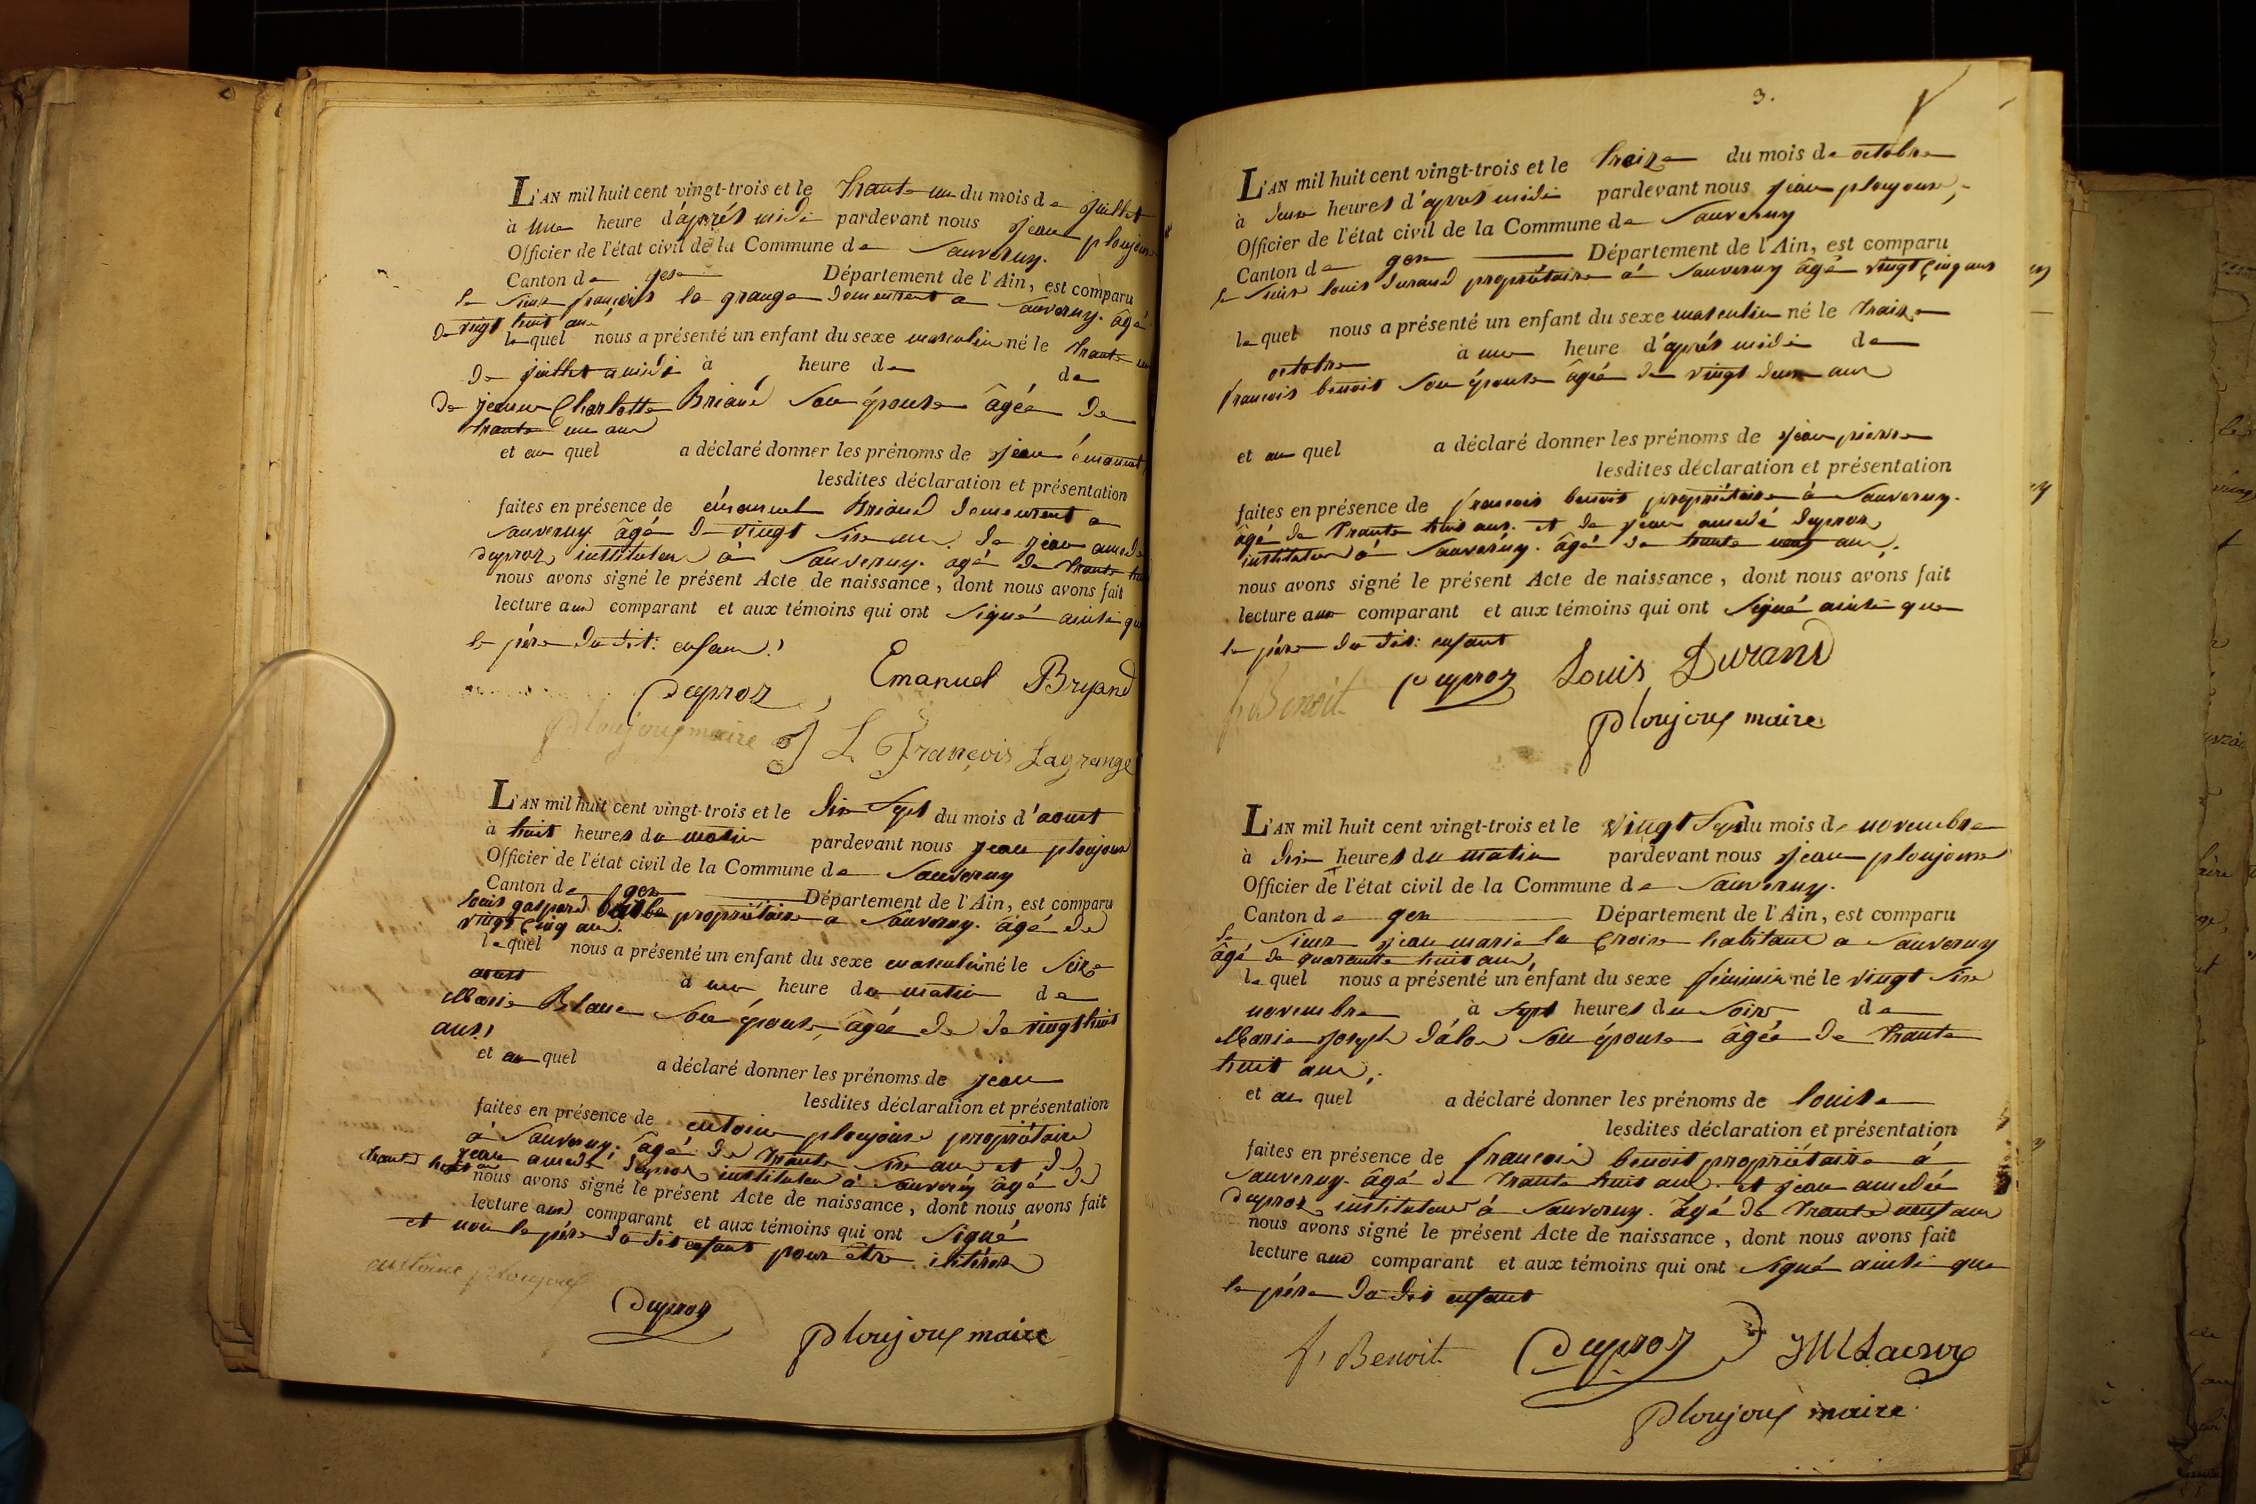 L'AN mil huit cent vingt-trois et le trante un du mois de juillet
à une heure d'aprést midi pardevant nous jean ploujoux
Officier de l'état civil de la Commune de Sauverny.
Canton de gex Département de l'Ain, est comparu
le Sieur françois la grange demeurent a Sauverny. âgé
de vingt huit ans
lequel nous a présenté un enfant du sexe masculin né le trante un
de juillet a midi à heure de de
de jeanne Charlotte Briand Son épouse âgée de
trante un ans
et au quel a déclaré donner les prénoms de jean émanuel
lesdites déclaration et présentation
faites en présence de émanuel Briand demeurent a
Sauverny âgé de vingt Six ans. de jean amedé
duproz instituteur à Sauverny. agé de trante huit
nous avons signé le présent Acte de naissance, dont nous avons fait
lecture aud comparant et aux témoins qui ont Signé ainsi que
le père du dit: enfant!
Emanuel Bryand
duproz
Ploujoux maire J L François Lagrange
L'AN mil huit cent vingt-trois et le dix Sept du mois d'aoust
à huit heures du matin pardevant nous jean ploujoux
Officier de l'état civil de la Commune de Sauverny
Canton de gex Département de l'Ain, est comparu
louis gaspard propriétaire a Sauverny. âgé de
vingt Cinq ans.
lequel nous a présenté un enfant du sexe masculin né le Seize
aoust à une heure du matin de
Marie Blanc Son épouse, âgée de de vingt huit
ans!
et au quel a déclaré donner les prénoms de jean
lesdites déclaration et présentation
faites en présence de antoine ploujoux propriétaire
à Sauverny. âgé de trante Six ans et de
jean amedé duproz instituteur à Sauverny âgé de
trante huit ans
nous avons signé le présent Acte de naissance, dont nous avons fait
lecture aud comparant et aux témoins qui ont Signé
et non le père du dit enfant pour être
antoine ploujoux
duproz
Ploujoux maire
3.
L'AN mil huit cent vingt-trois et le treize du mois de octobre
à deux heures d'aprest midi pardevant nous jean ploujoux,
Officier de l'état civil de la Commune de Sauverny
Canton de gex Département de l'Ain, est comparu
le Sieur louis durand propriétaire à Sauverny âgé vingt Cinq ans
lequel nous a présenté un enfant du sexe masculin né le traize
octobre à une heure d'aprést midi de
françois benoit Son épouse âgée de vingt deux ans
et au quel a déclaré donner les prénoms de jean pierre
lesdites déclaration et présentation
faites en présence de françois benoit propriétaire à Sauverny.
âgé de trante huit ans. et de jean amedé duproz,
instituteur à Sauverny. âgé de trante neuf ans.
nous avons signé le présent Acte de naissance, dont nous avons fait
lecture aux comparant et aux témoins qui ont Signé ainsi que
le père du dit: enfant
f. Benoit duproz Louis Durand
Ploujoux maire
L'AN mil huit cent vingt-trois et le vingt Sept du mois de novembre
à dix heures du matin pardevant nous jean ploujoux
Officier de l'état civil de la Commune de Sauverny.
Canton de gex Département de l'Ain, est comparu
le Sieur jean marie la Croix habitant a Sauverny
âgé de quarante huit ans,
lequel nous a présenté un enfant du sexe féminin né le vingt Six
novembre à Sept heures du Soir de
Marie joseph dálox Son épouse âgée de trante
huit ans,
et au quel a déclaré donner les prénoms de louise
lesdites déclaration et présentation
faites en présence de françois benoit propriétaire à
Sauverny. âgé de trante huit ans. et jean amedée
duproz instituteur à Sauverny. âgé de trante neuf ans
nous avons signé le présent Acte de naissance, dont nous avons fait
lecture aud comparant et aux témoins qui ont Signé ainsi que
le père du dit enfant
f. Benoit duproz JM Lacroix
Ploujoux maire